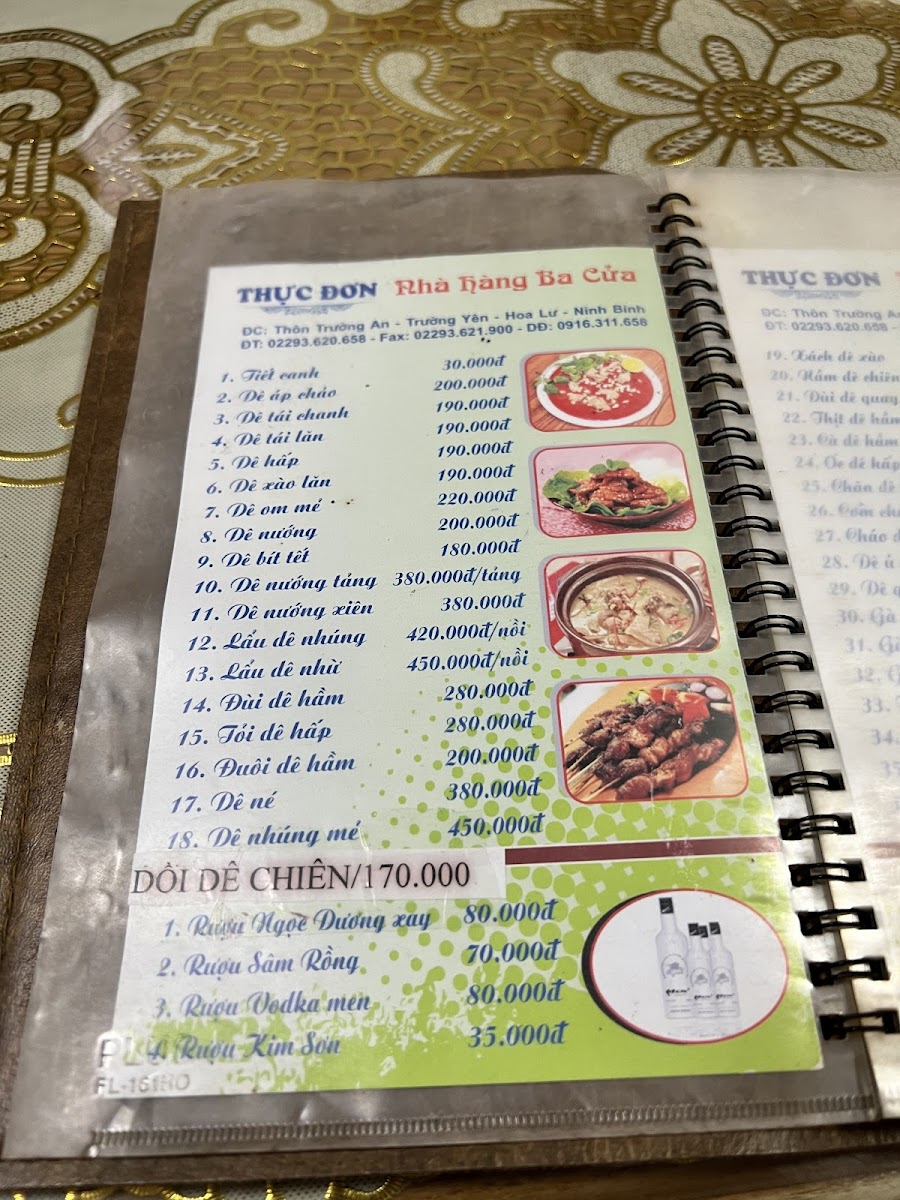 THỰC ĐƠN Nhà hàng Ba Cửa
ĐC: Thôn Trường An - Trường Yên - Hoa Lư - Ninh Bình
ĐT: 02293.620.658 - Fax: 02293.621.900 - DĐ: 0916.311.658
1. Tiết canh 30.000đ
2. Dê áp chảo 200.000đ
3. Dê tái chanh 190.000đ
4. Dê tái lăn 190.000đ
5. Dê hấp 190.000đ
6. Dê xào lăn 190.000đ
7. Dê om mẻ 220.000đ
8. Dê nướng 200.000đ
9. Dê bít tết 180.000đ
10. Dê nướng tảng 380.000đ/tảng
11. Dê nướng xiên 380.000đ
12. Lẩu dê nhúng 420.000đ/nồi
13. Lẩu dê nhừ 450.000đ/nồi
14. Đùi dê hầm 280.000đ
15. Tỏi dê hấp 280.000đ
16. Đuôi dê hầm 200.000đ
17. Dê né 380.000đ
18. Dê nhúng mẻ 450.000đ
DỒI DÊ CHIÊN/170.000
1. Rượu Ngọc Dương xay 80.000đ
2. Rượu Sâm Rồng 70.000đ
3. Rượu Vodka men 80.000đ
4. Rượu Kim Sơn 35.000đ
FL-161HO
THỰC ĐƠN
ĐC: Thôn Trường
ĐT: 02293.620.658 -
19. Xách dê xào
20. Nầm dê chiên
21. Đùi dê quay
22. Thịt dê hầm
23. Cà dê hầm
24. Óc dê hấp
25. Chân dê
26. Cơm
27. Cháo
28. Dê
29. Dê
30. Gà
31.
32.
33.
34.
35